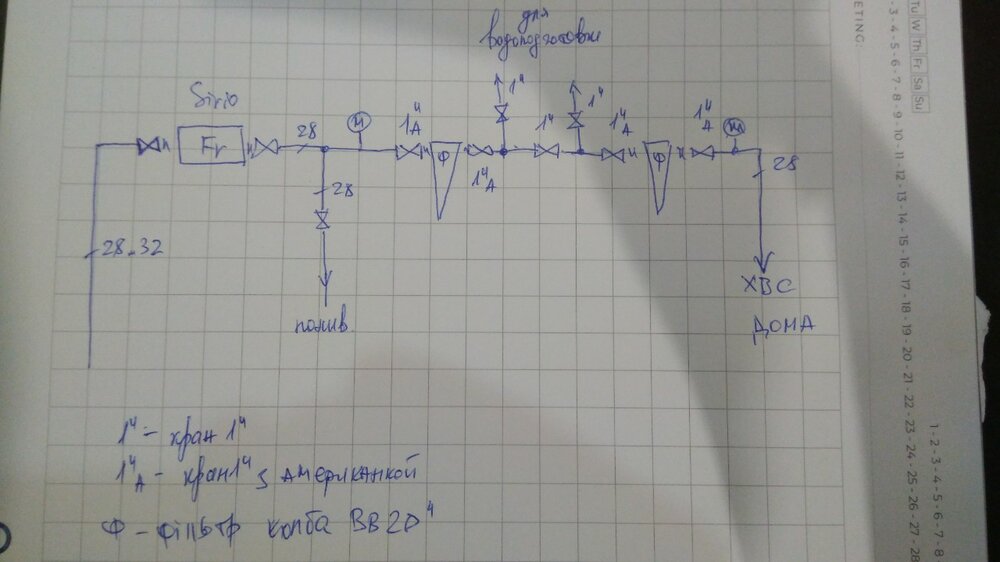 для
водоподготовки
1"
1"
Sirio
Fr
28
М
1"А
Ф
1"А
1"
1"А
Ф
1"А
М
28
28
28-32
полив
ХВС
ДОМА
1" - кран 1"
1"А - кран 1" з американкой
Ф - фільтр колба ВВ20"
ETING:
Tu W Th Fr Sa Su
3 - 4 - 5 - 6 - 7 - 8 - 9 - 10 - 11 - 12 - 13 - 14 - 15 - 16 - 17 - 18 - 19 - 20 - 21 - 22 - 23 - 24 - 25 - 26 - 27 - 28
1 - 2 - 3 - 4 - 5 - 6 - 7 - 8